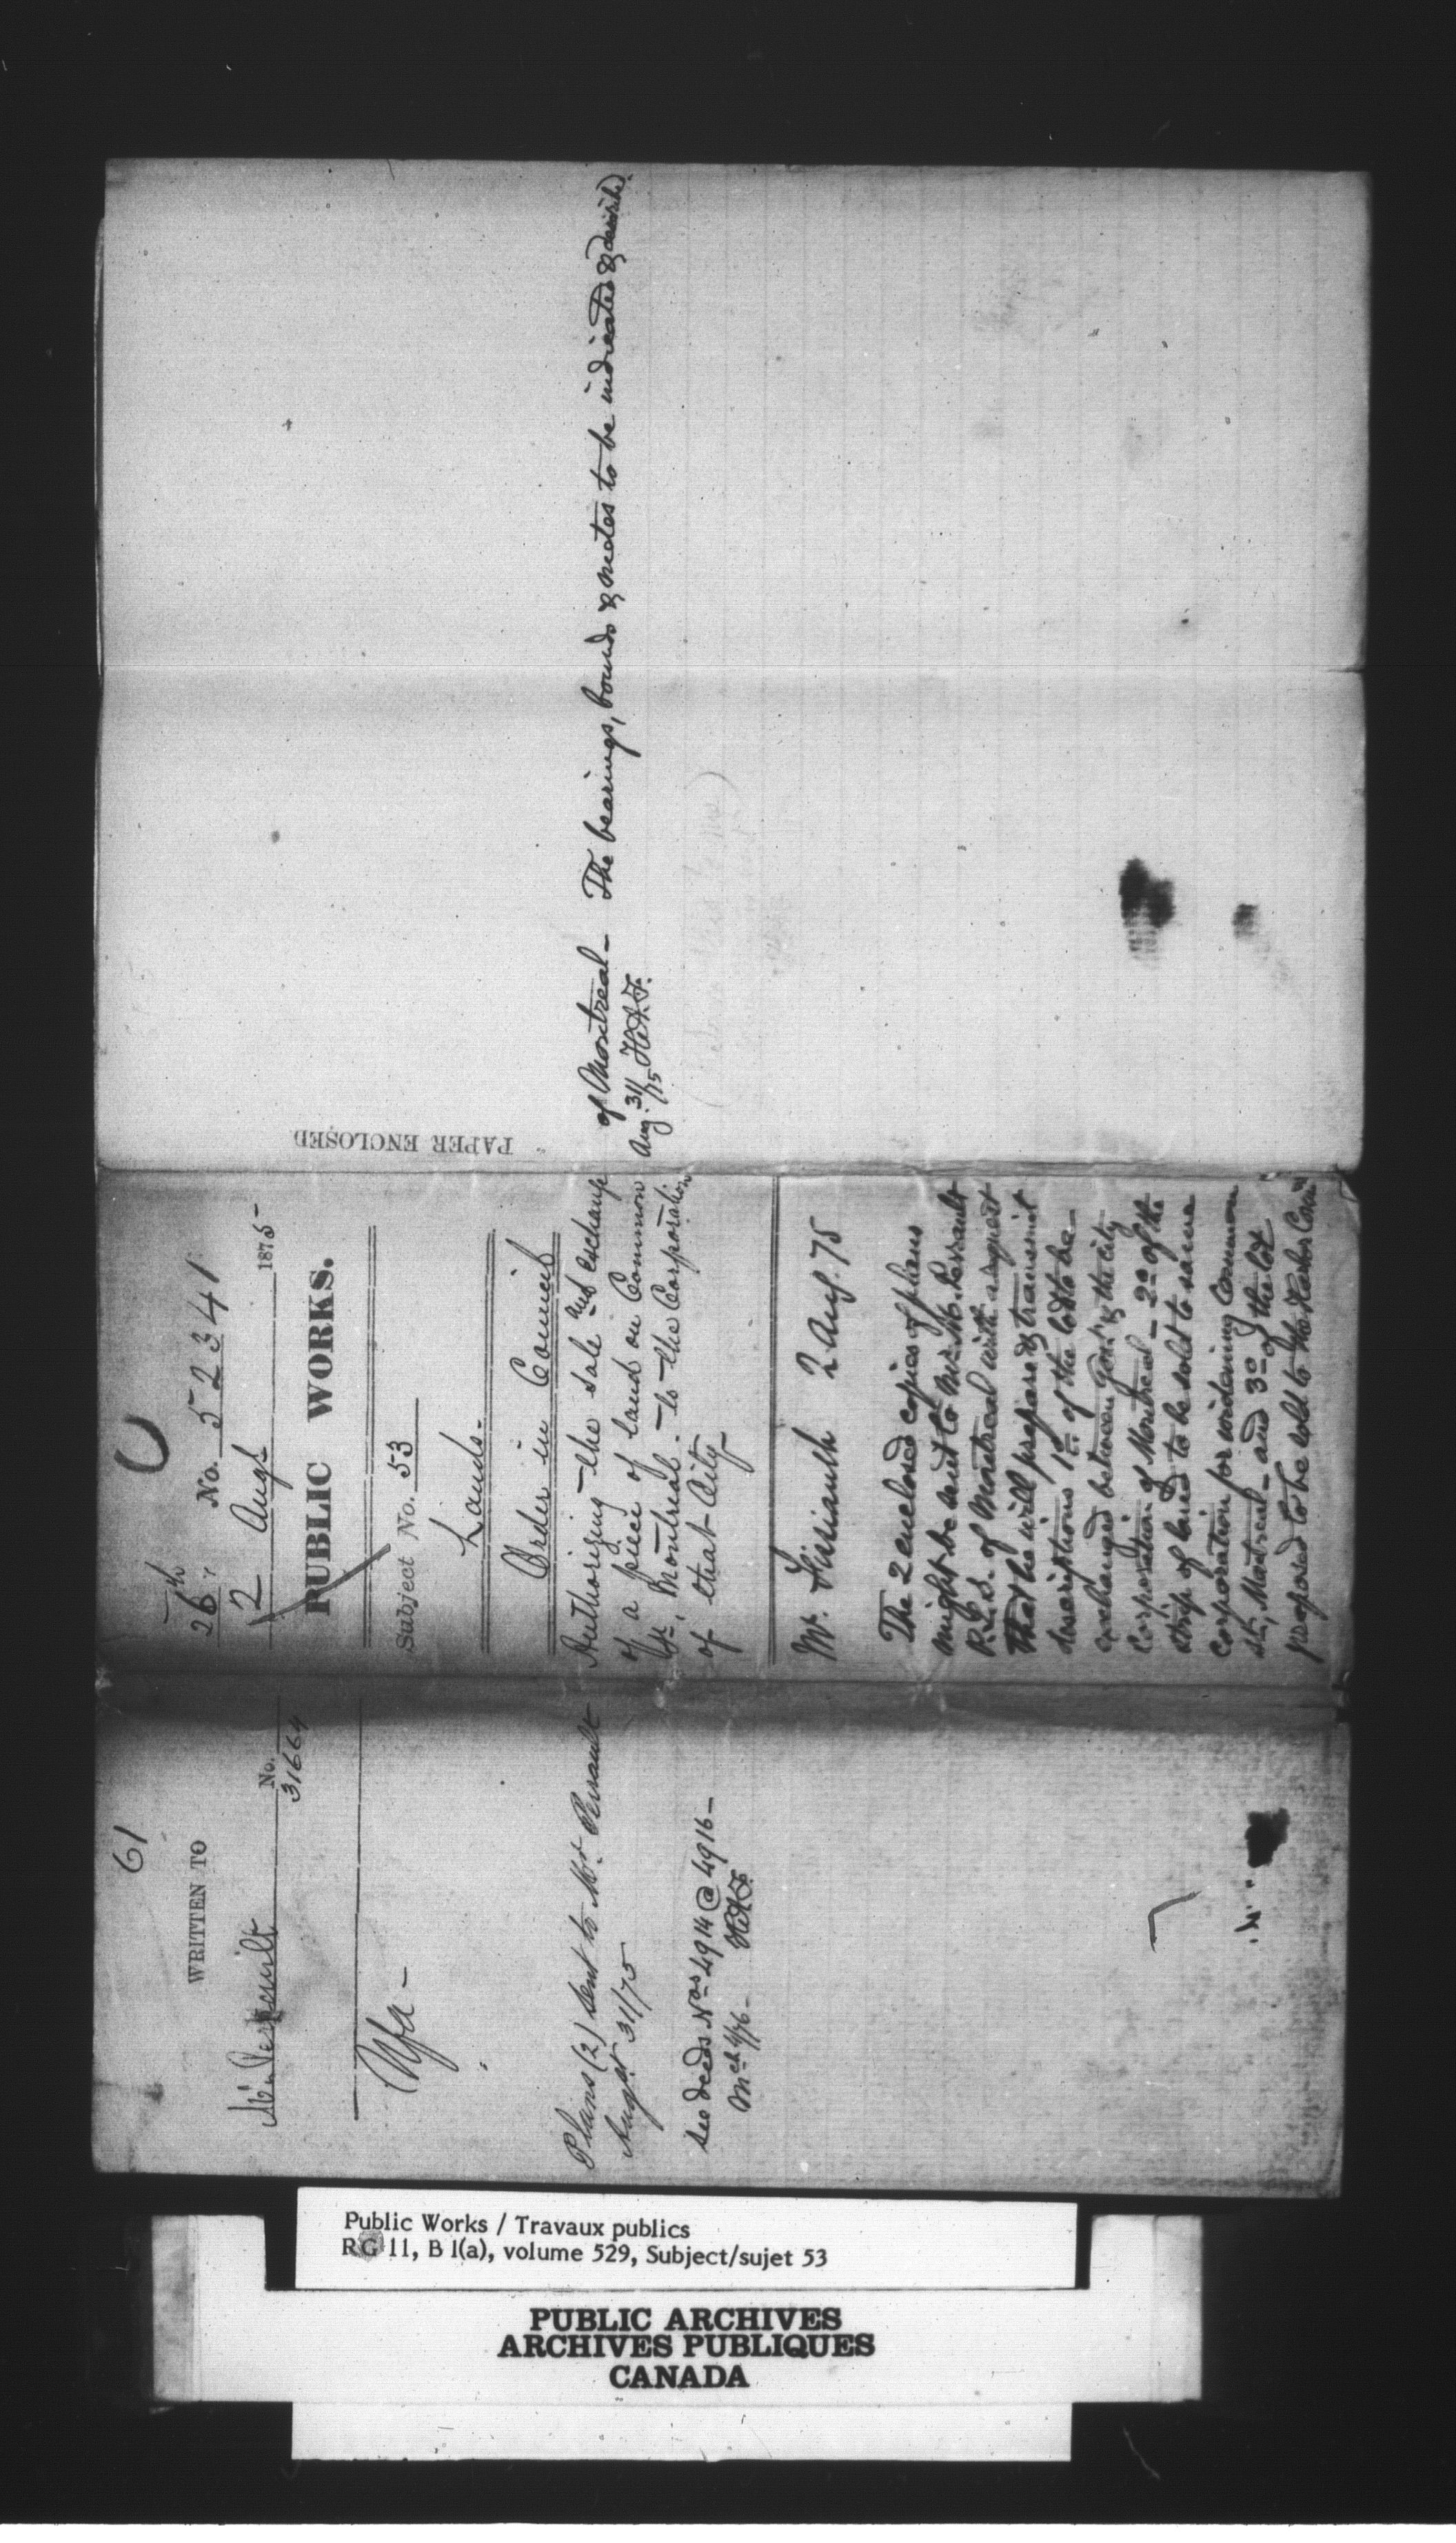 61
WRITTEN TO
Mr Perrault
No. 31664
Plans (2) sent to Mr. Perrault
Augst 31/75
See deeds Nos 4914 @ 4916 –
Mch 4/76 – H.A.F.
26th
No. 52341
2 Augt 1875
PUBLIC WORKS.
Subject No. 53
Lands.
Order in Council
Authorizing the sale and exchange
of a piece of land on Common
St., Montreal – to the Corporation
of that City
Mr. Fissiault 2 Aug. 75
The 2 enclosed copies of plans
might be sent to Mr. M. Perrault
P.L.S. of Montreal with request
that he will prepare & transmit
descriptions 1o of the lot to be
exchanged between Govt & the City
Corporation of Montreal – 2o of the
strip of land to be sold to same
corporation for widening Common
St., Montreal – and 3o of the lot
proposed to be sold to the Harbor Comrs
of Montreal – The bearings, bounds & metes to be indicated & described.
Aug. 31/75 H.A.F.
PAPER ENCLOSED
Public Works / Travaux publics
RG 11, B 1(a), volume 529, Subject/sujet 53
PUBLIC ARCHIVES
ARCHIVES PUBLIQUES
CANADA